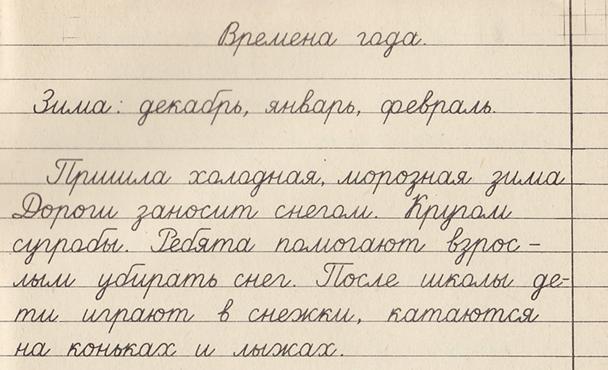 Времена года.
Зима: декабрь, январь, февраль.
Пришла холодная, морозная зима
Дороги заносит снегом. Кругом
сугробы. Ребята помогают взрос-
лым убирать снег. После школы де-
ти играют в снежки, катаются
на коньках и лыжах.